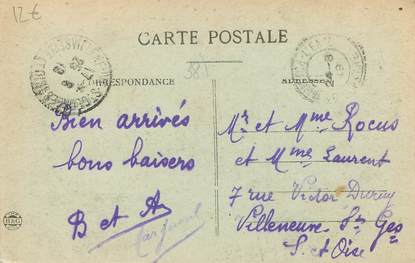 12€
CARTE POSTALE
CORRESPONDANCE
381
ADRESSE
Bien arrivés
bons baisers
B et A
Mr et Mme Rocus
et Mme Laurent
7 rue Victor Duruy
Villeneuve St Geo
S. et Oise